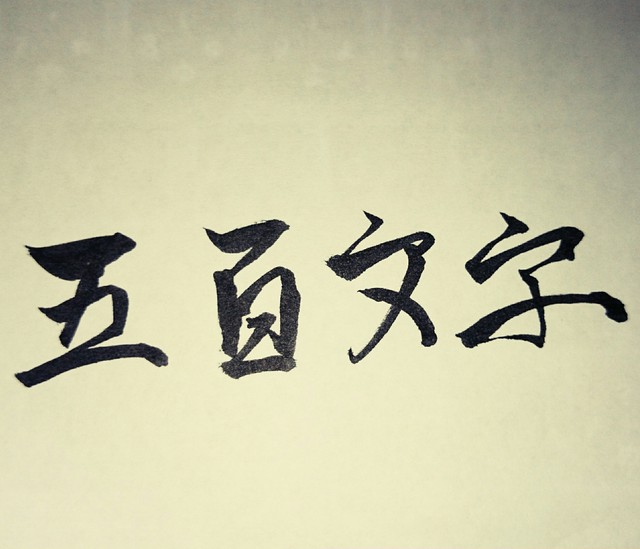 五百文字